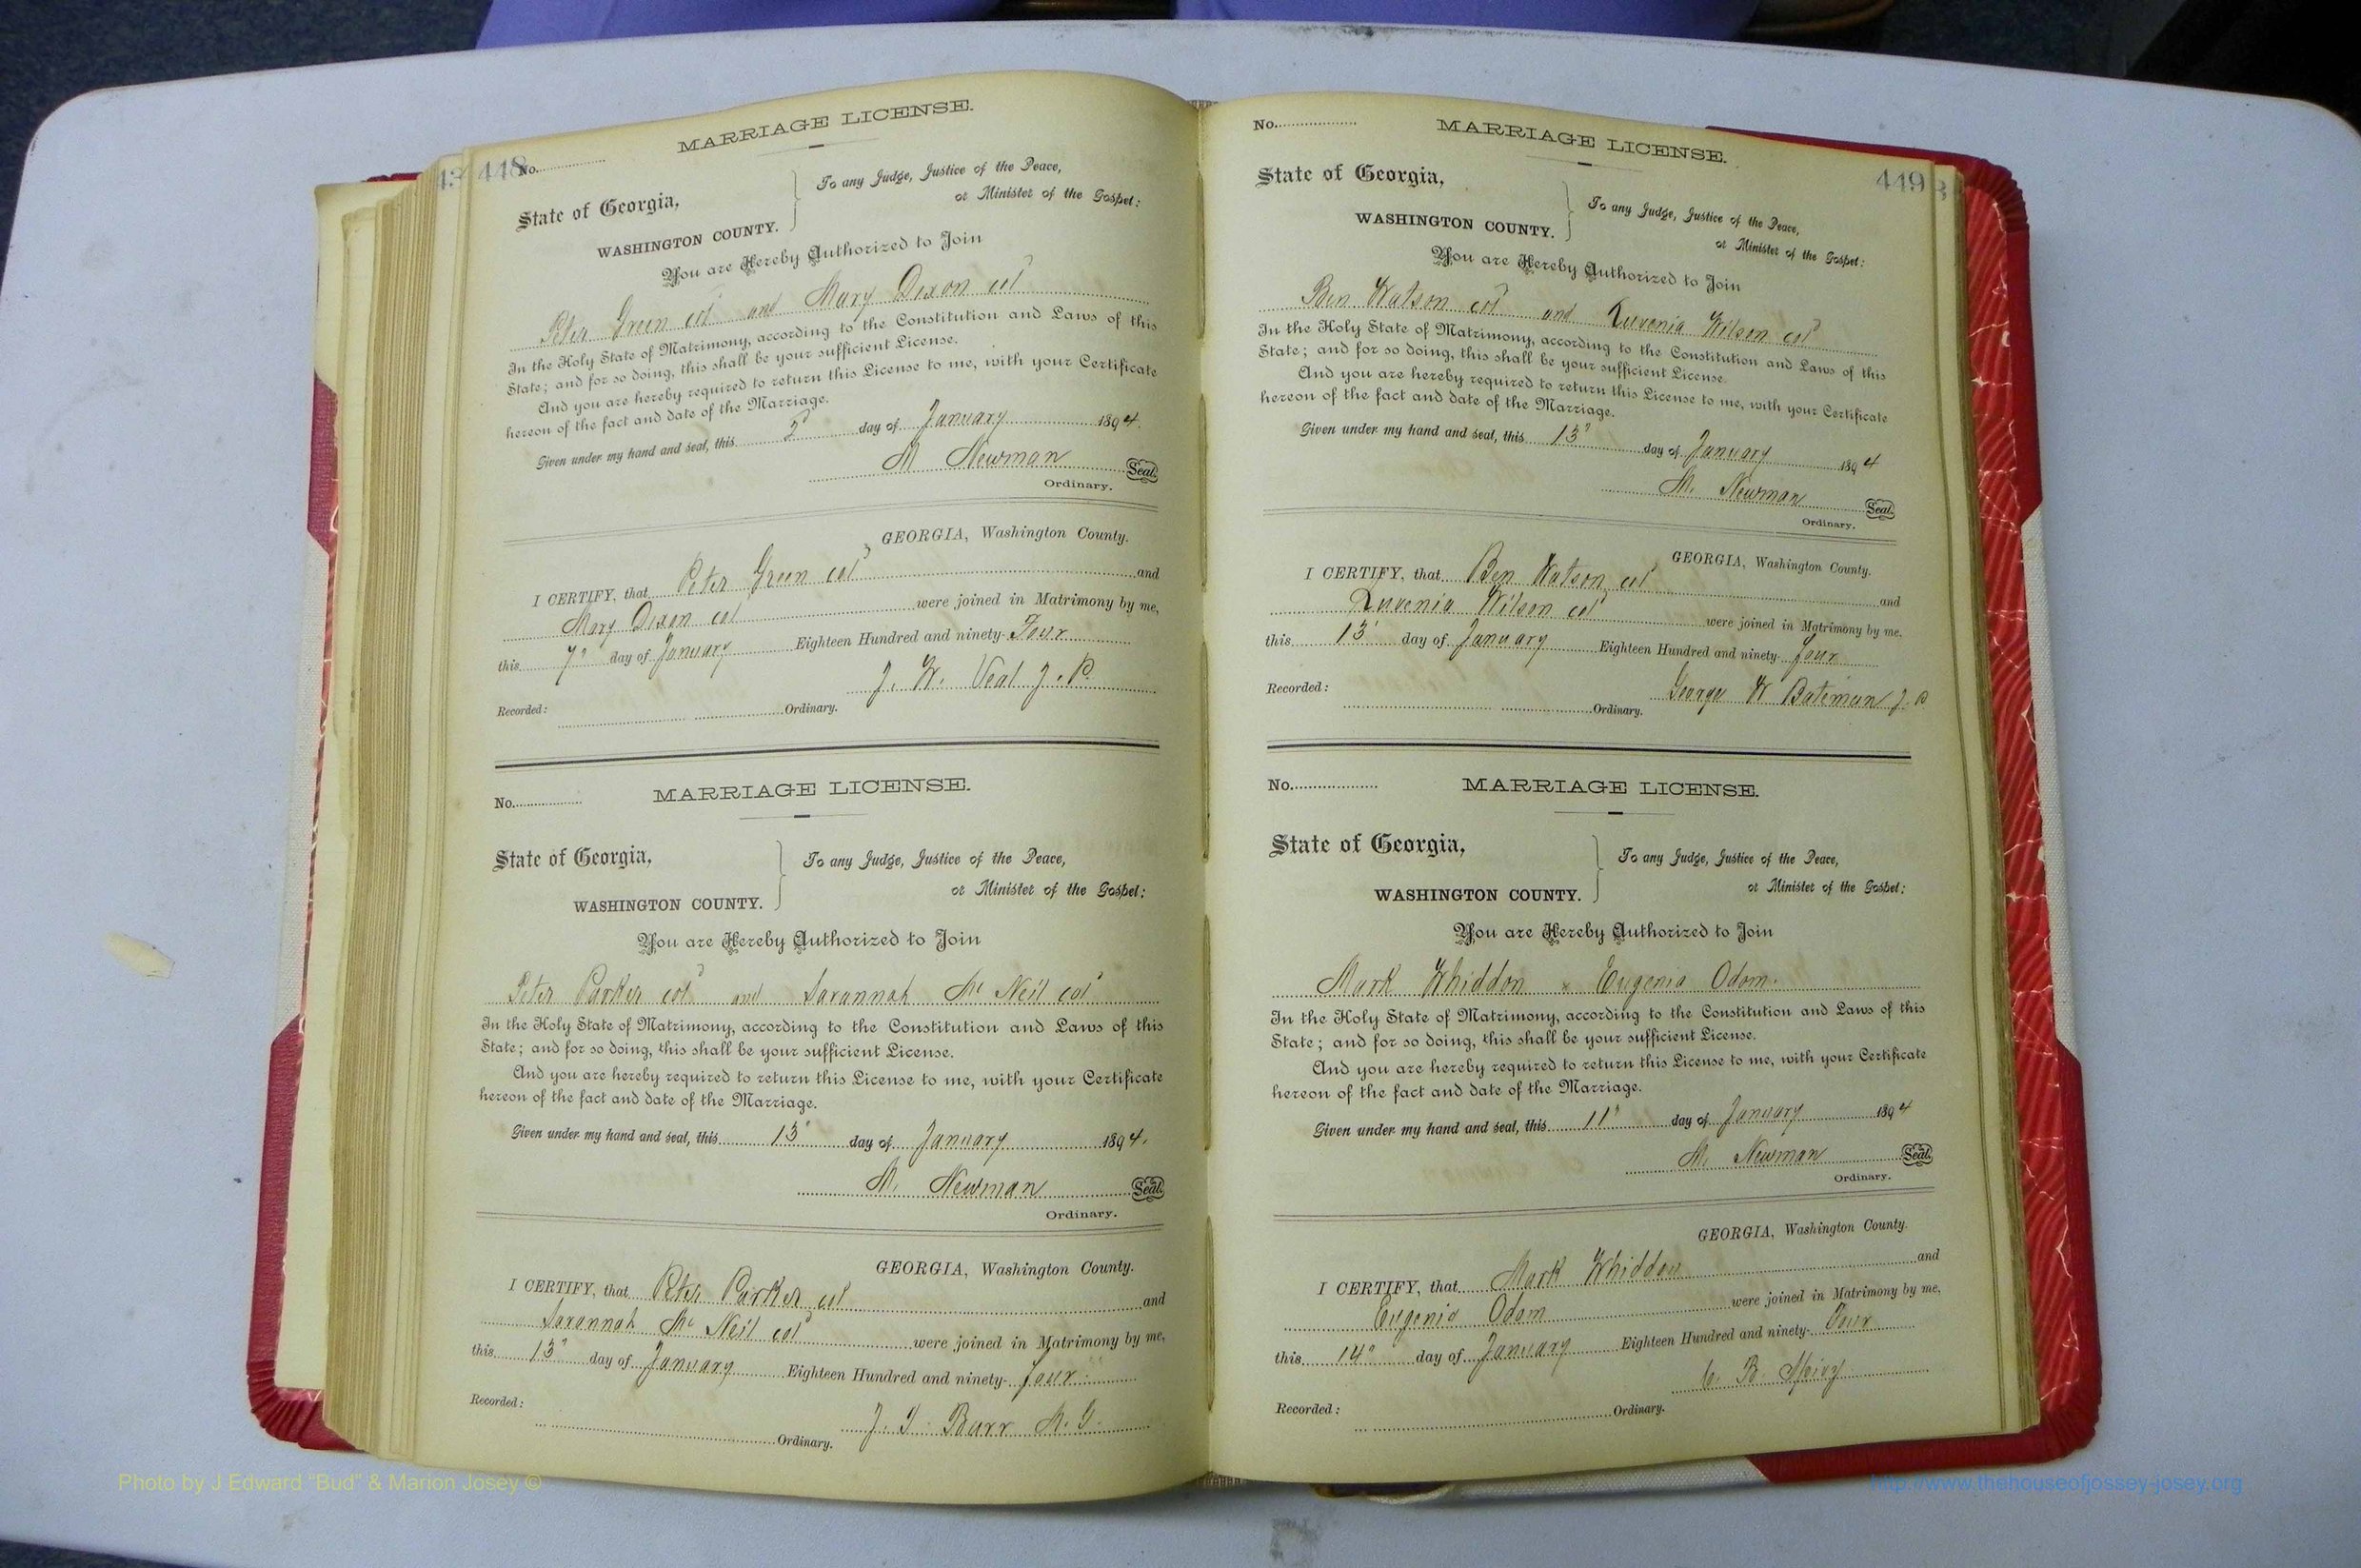 448
No.
MARRIAGE LICENSE.
State of Georgia,
WASHINGTON COUNTY.
To any Judge, Justice of the Peace,
or Minister of the Gospel:
You are Hereby Authorized to Join
Peter Green col and Mary Dixon col
In the Holy State of Matrimony, according to the Constitution and Laws of this
State; and for so doing, this shall be your sufficient License.
And you are hereby required to return this License to me, with your Certificate
hereon of the fact and date of the Marriage.
Given under my hand and seal, this day of January 1894.
M Newman Seal.
Ordinary.
GEORGIA, Washington County.
I CERTIFY, that Peter Green col and
Mary Dixon col were joined in Matrimony by me,
this 7 day of January Eighteen Hundred and ninety-Four
J. W. Veal J. P.
Recorded: Ordinary.
No.
MARRIAGE LICENSE.
State of Georgia,
WASHINGTON COUNTY.
To any Judge, Justice of the Peace,
or Minister of the Gospel:
You are Hereby Authorized to Join
Peter Parker col and Savannah Mc Neil col
In the Holy State of Matrimony, according to the Constitution and Laws of this
State; and for so doing, this shall be your sufficient License.
And you are hereby required to return this License to me, with your Certificate
hereon of the fact and date of the Marriage.
Given under my hand and seal, this 13 day of January 1894.
M. Newman Seal.
Ordinary.
GEORGIA, Washington County.
I CERTIFY, that Peter Parker col and
Savannah Mc Neil col were joined in Matrimony by me,
this 13 day of January Eighteen Hundred and ninety-four
Recorded:
Ordinary. Barr M. G.
449
No.
MARRIAGE LICENSE.
State of Georgia,
WASHINGTON COUNTY.
To any Judge, Justice of the Peace,
or Minister of the Gospel:
You are Hereby Authorized to Join
Ben Watson col and Luvenia Wilson col
In the Holy State of Matrimony, according to the Constitution and Laws of this
State; and for so doing, this shall be your sufficient License.
And you are hereby required to return this License to me, with your Certificate
hereon of the fact and date of the Marriage.
Given under my hand and seal, this 13 day of January 1894
M. Newman Seal.
Ordinary.
GEORGIA, Washington County.
I CERTIFY, that Ben Watson col and
Luvenia Wilson col were joined in Matrimony by me,
this 13 day of January Eighteen Hundred and ninety-four
George W Bateman J. P
Recorded: Ordinary.
No.
MARRIAGE LICENSE.
State of Georgia,
WASHINGTON COUNTY.
To any Judge, Justice of the Peace,
or Minister of the Gospel:
You are Hereby Authorized to Join
Mark Whiddon Eugenia Odom.
In the Holy State of Matrimony, according to the Constitution and Laws of this
State; and for so doing, this shall be your sufficient License.
And you are hereby required to return this License to me, with your Certificate
hereon of the fact and date of the Marriage.
Given under my hand and seal, this 11 day of January 1894
M. Newman Seal.
Ordinary.
GEORGIA, Washington County.
I CERTIFY, that Mark Whiddon and
Eugenia Odom were joined in Matrimony by me,
this 14 day of January Eighteen Hundred and ninety-Four
Recorded: Ordinary.
Photo by J Edward "Bud" & Marion Josey ©
http://www.thehouseofjossey-josey.org